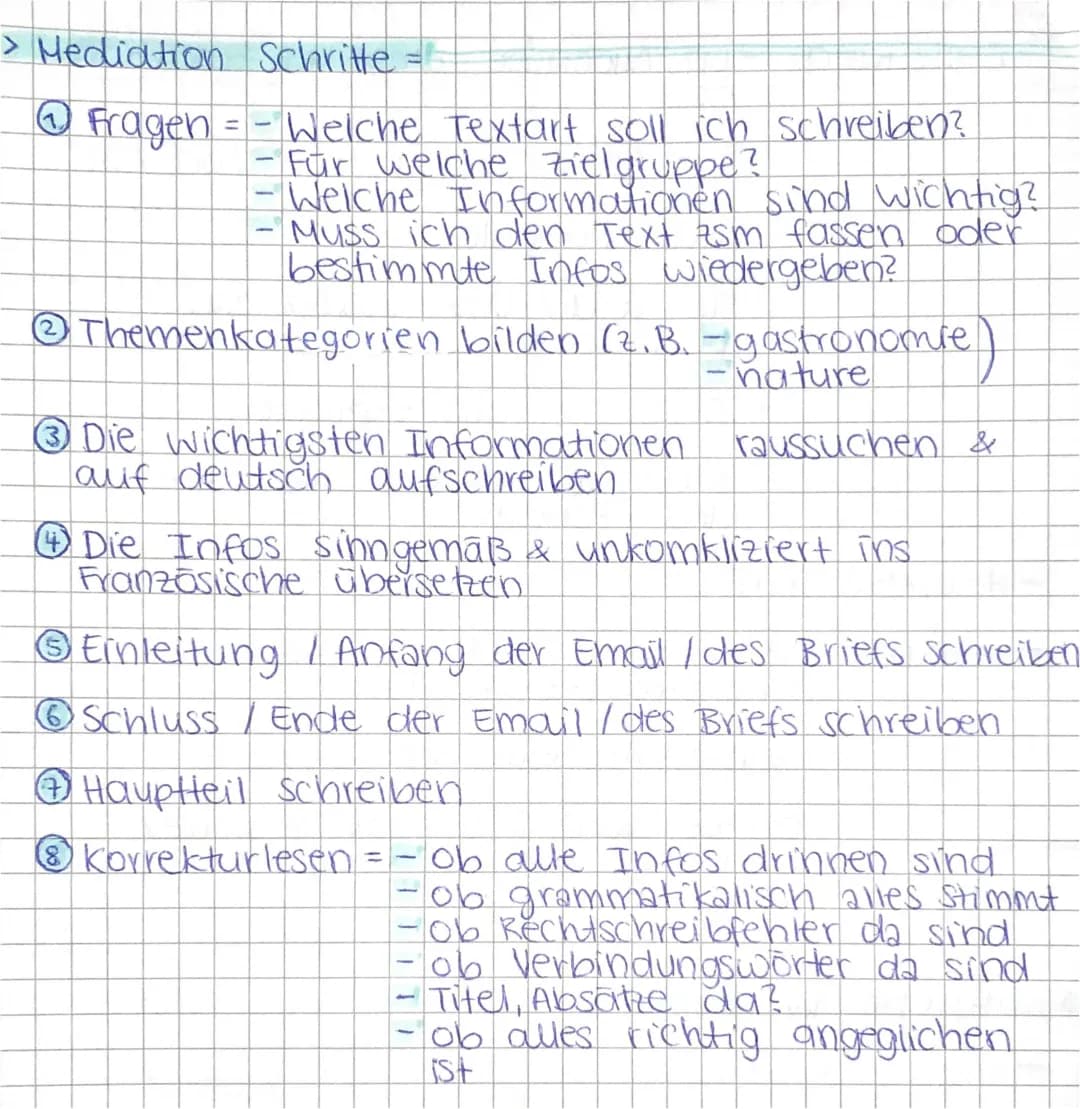 > Mediation Schritte =
① Fragen = - Welche Textart soll ich schreiben?
- Für welche Zielgruppe?
- Welche Informationen sind wichtig?
- Muss ich den Text zsm fassen oder
bestimmte Infos wiedergeben?
② Themenkategorien bilden (z.B. - gastronomie)
- nature
③ Die wichtigsten Informationen raussuchen &
auf deutsch aufschreiben
④ Die Infos sinngemäß & unkomkliziert ins
Französische übersetzen
⑤ Einleitung / Anfang der Email / des Briefs schreiben
⑥ Schluss / Ende der Email / des Briefs schreiben
⑦ Hauptteil schreiben
⑧ Korrekturlesen = - Ob alle Infos drinnen sind
- ob grammatikalisch alles stimmt
- ob Rechtschreibfehler da sind
- ob Verbindungswörter da sind
- Titel, Absätze da?
- ob alles richtig angeglichen
ist